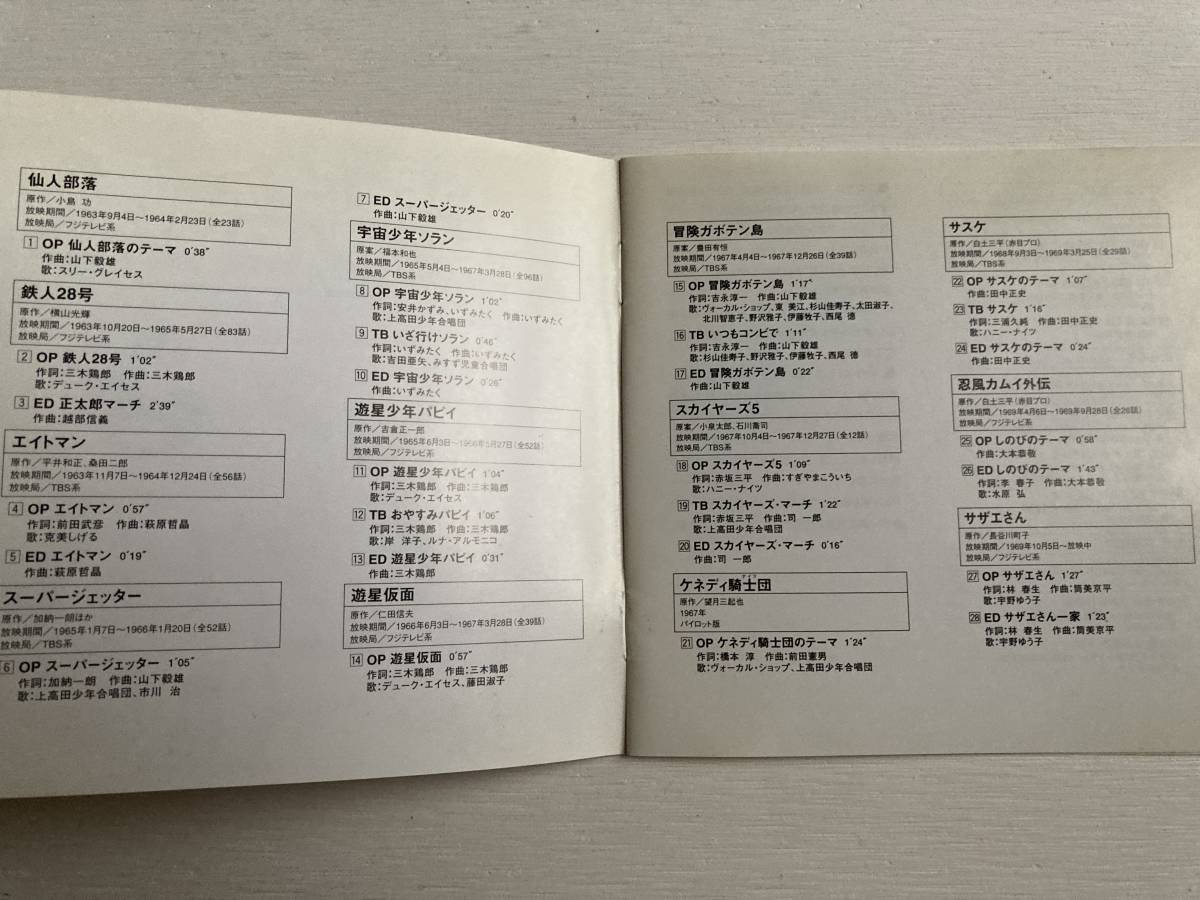 仙人部落
原作／小島 功
放映期間／1963年9月4日～1964年2月23日(全23話)
放映局／フジテレビ系
1 OP 仙人部落のテーマ 0'38"
作曲:山下毅雄
歌:スリー・グレイセス
鉄人28号
原作／横山光輝
放映期間／1963年10月20日～1965年5月27日(全83話)
放映局／フジテレビ系
2 OP 鉄人28号 1'02"
作詞:三木鶏郎 作曲:三木鶏郎
歌:デューク・エイセス
3 ED 正太郎マーチ 2'39"
作曲:越部信義
エイトマン
原作／平井和正、桑田二郎
放映期間／1963年11月7日～1964年12月24日(全56話)
放映局／TBS系
4 OP エイトマン 0'57"
作詞:前田武彦 作曲:萩原哲晶
歌:克美しげる
5 ED エイトマン 0'19"
作曲:萩原哲晶
スーパージェッター
原作／加納一朗ほか
放映期間／1965年1月7日～1966年1月20日(全52話)
放映局／TBS系
6 OP スーパージェッター 1'05"
作詞:加納一朗 作曲:山下毅雄
歌:上高田少年合唱団、市川 治
7 ED スーパージェッター 0'20"
作曲:山下毅雄
宇宙少年ソラン
原案／福本和也
放映期間／1965年5月4日～1967年3月28日(全96話)
放映局／TBS系
8 OP 宇宙少年ソラン 1'02"
作詞:安井かずみ、いずみたく 作曲:いずみたく
歌:上高田少年合唱団
9 TB いざ行けソラン 0'46"
作詞:いずみたく 作曲:いずみたく
歌:吉田亜矢、みすず児童合唱団
10 ED 宇宙少年ソラン 0'26"
作曲:いずみたく
遊星少年パピイ
原作／吉倉正一郎
放映期間／1965年6月3日～1966年5月27日(全52話)
放映局／フジテレビ系
11 OP 遊星少年パピイ 1'04"
作詞:三木鶏郎 作曲:三木鶏郎
歌:デューク・エイセス
12 TB おやすみパピイ 1'06"
作詞:三木鶏郎 作曲:三木鶏郎
歌:岸 洋子、ルナ・アルモニコ
13 ED 遊星少年パピイ 0'31"
作曲:三木鶏郎
遊星仮面
原作／仁田信夫
放映期間／1966年6月3日～1967年3月28日(全39話)
放映局／フジテレビ系
14 OP 遊星仮面 0'57"
作詞:三木鶏郎 作曲:三木鶏郎
歌:デューク・エイセス、藤田淑子
冒険ガボテン島
原案／豊田有恒
放映期間／1967年4月4日～1967年12月26日(全39話)
放映局／TBS系
15 OP 冒険ガボテン島 1'17"
作詞:吉永淳一 作曲:山下毅雄
歌:ヴォーカル・ショップ、東 美江、杉山佳寿子、太田淑子、
北川智恵子、野沢雅子、伊藤牧子、西尾 徳
16 TB いつもコンビで 1'11"
作詞:吉永淳一 作曲:山下毅雄
歌:杉山佳寿子、野沢雅子、伊藤牧子、西尾 徳
17 ED 冒険ガボテン島 0'22"
作曲:山下毅雄
スカイヤーズ5
原案／小泉太郎、石川喬司
放映期間／1967年10月4日～1967年12月27日(全12話)
放映局／TBS系
18 OP スカイヤーズ5 1'09"
作詞:赤坂三平 作曲:すぎやまこういち
歌:ハニー・ナイツ
19 TB スカイヤーズ・マーチ 1'22"
作詞:赤坂三平 作曲:司 一郎
歌:上高田少年合唱団
20 ED スカイヤーズ・マーチ 0'16"
作曲:司 一郎
ケネディ騎士団
原作／望月三起也
1967年
パイロット版
21 OP ケネディ騎士団のテーマ 1'24"
作詞:橋本 淳 作曲:前田憲男
歌:ヴォーカル・ショップ、上高田少年合唱団
サスケ
原作／白土三平(赤目プロ)
放映期間／1968年9月3日～1969年3月25日(全29話)
放映局／TBS系
22 OP サスケのテーマ 1'07"
作曲:田中正史
23 TB サスケ 1'16"
作詞:三浦久純 作曲:田中正史
歌:ハニー・ナイツ
24 ED サスケのテーマ 0'24"
作曲:田中正史
忍風カムイ外伝
原作／白土三平(赤目プロ)
放映期間／1969年4月6日～1969年9月28日(全26話)
放映局／フジテレビ系
25 OP しのびのテーマ 0'58"
作曲:大本恭敬
26 ED しのびのテーマ 1'43"
作詞:李 春子 作曲:大本恭敬
歌:水原 弘
サザエさん
原作／長谷川町子
放映期間／1969年10月5日～放映中
放映局／フジテレビ系
27 OP サザエさん 1'27"
作詞:林 春生 作曲:筒美京平
歌:宇野ゆう子
28 ED サザエさん一家 1'23"
作詞:林 春生 作曲:筒美京平
歌:宇野ゆう子